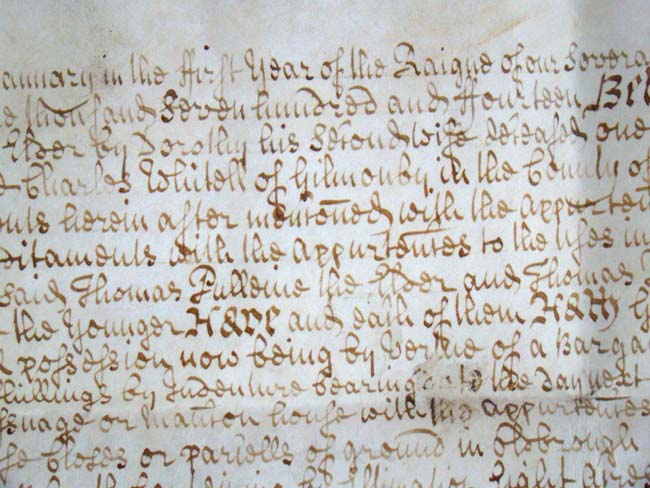 anuary in the ffirst Year of the Raigne of our Sovera
e thousand Seven hundred and ffourteen Bet
Elder by Dorothy his Second wife deceased one
e Charles Whitell of Gilmonby in the County of
ents herein after mentoned with the appurten
ditaments with the appurtentes to the uses in
said Thomas Pulleine the Elder and Thomas
r the Younger Have and each of them Hath
possession now being by Vertue of a Barga
Shillings by Indenture bearing date the day next
ssuage or Manton house with the appurtentes
se Closes or parcells of ground in